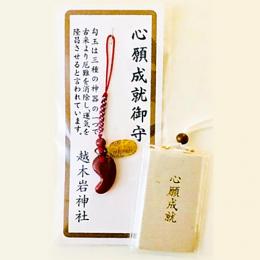 心願成就御守
勾玉は三種の神器の一つで
古来より厄難を消除し、運気を
隆昌させると言われています。
越木岩神社
心願成就